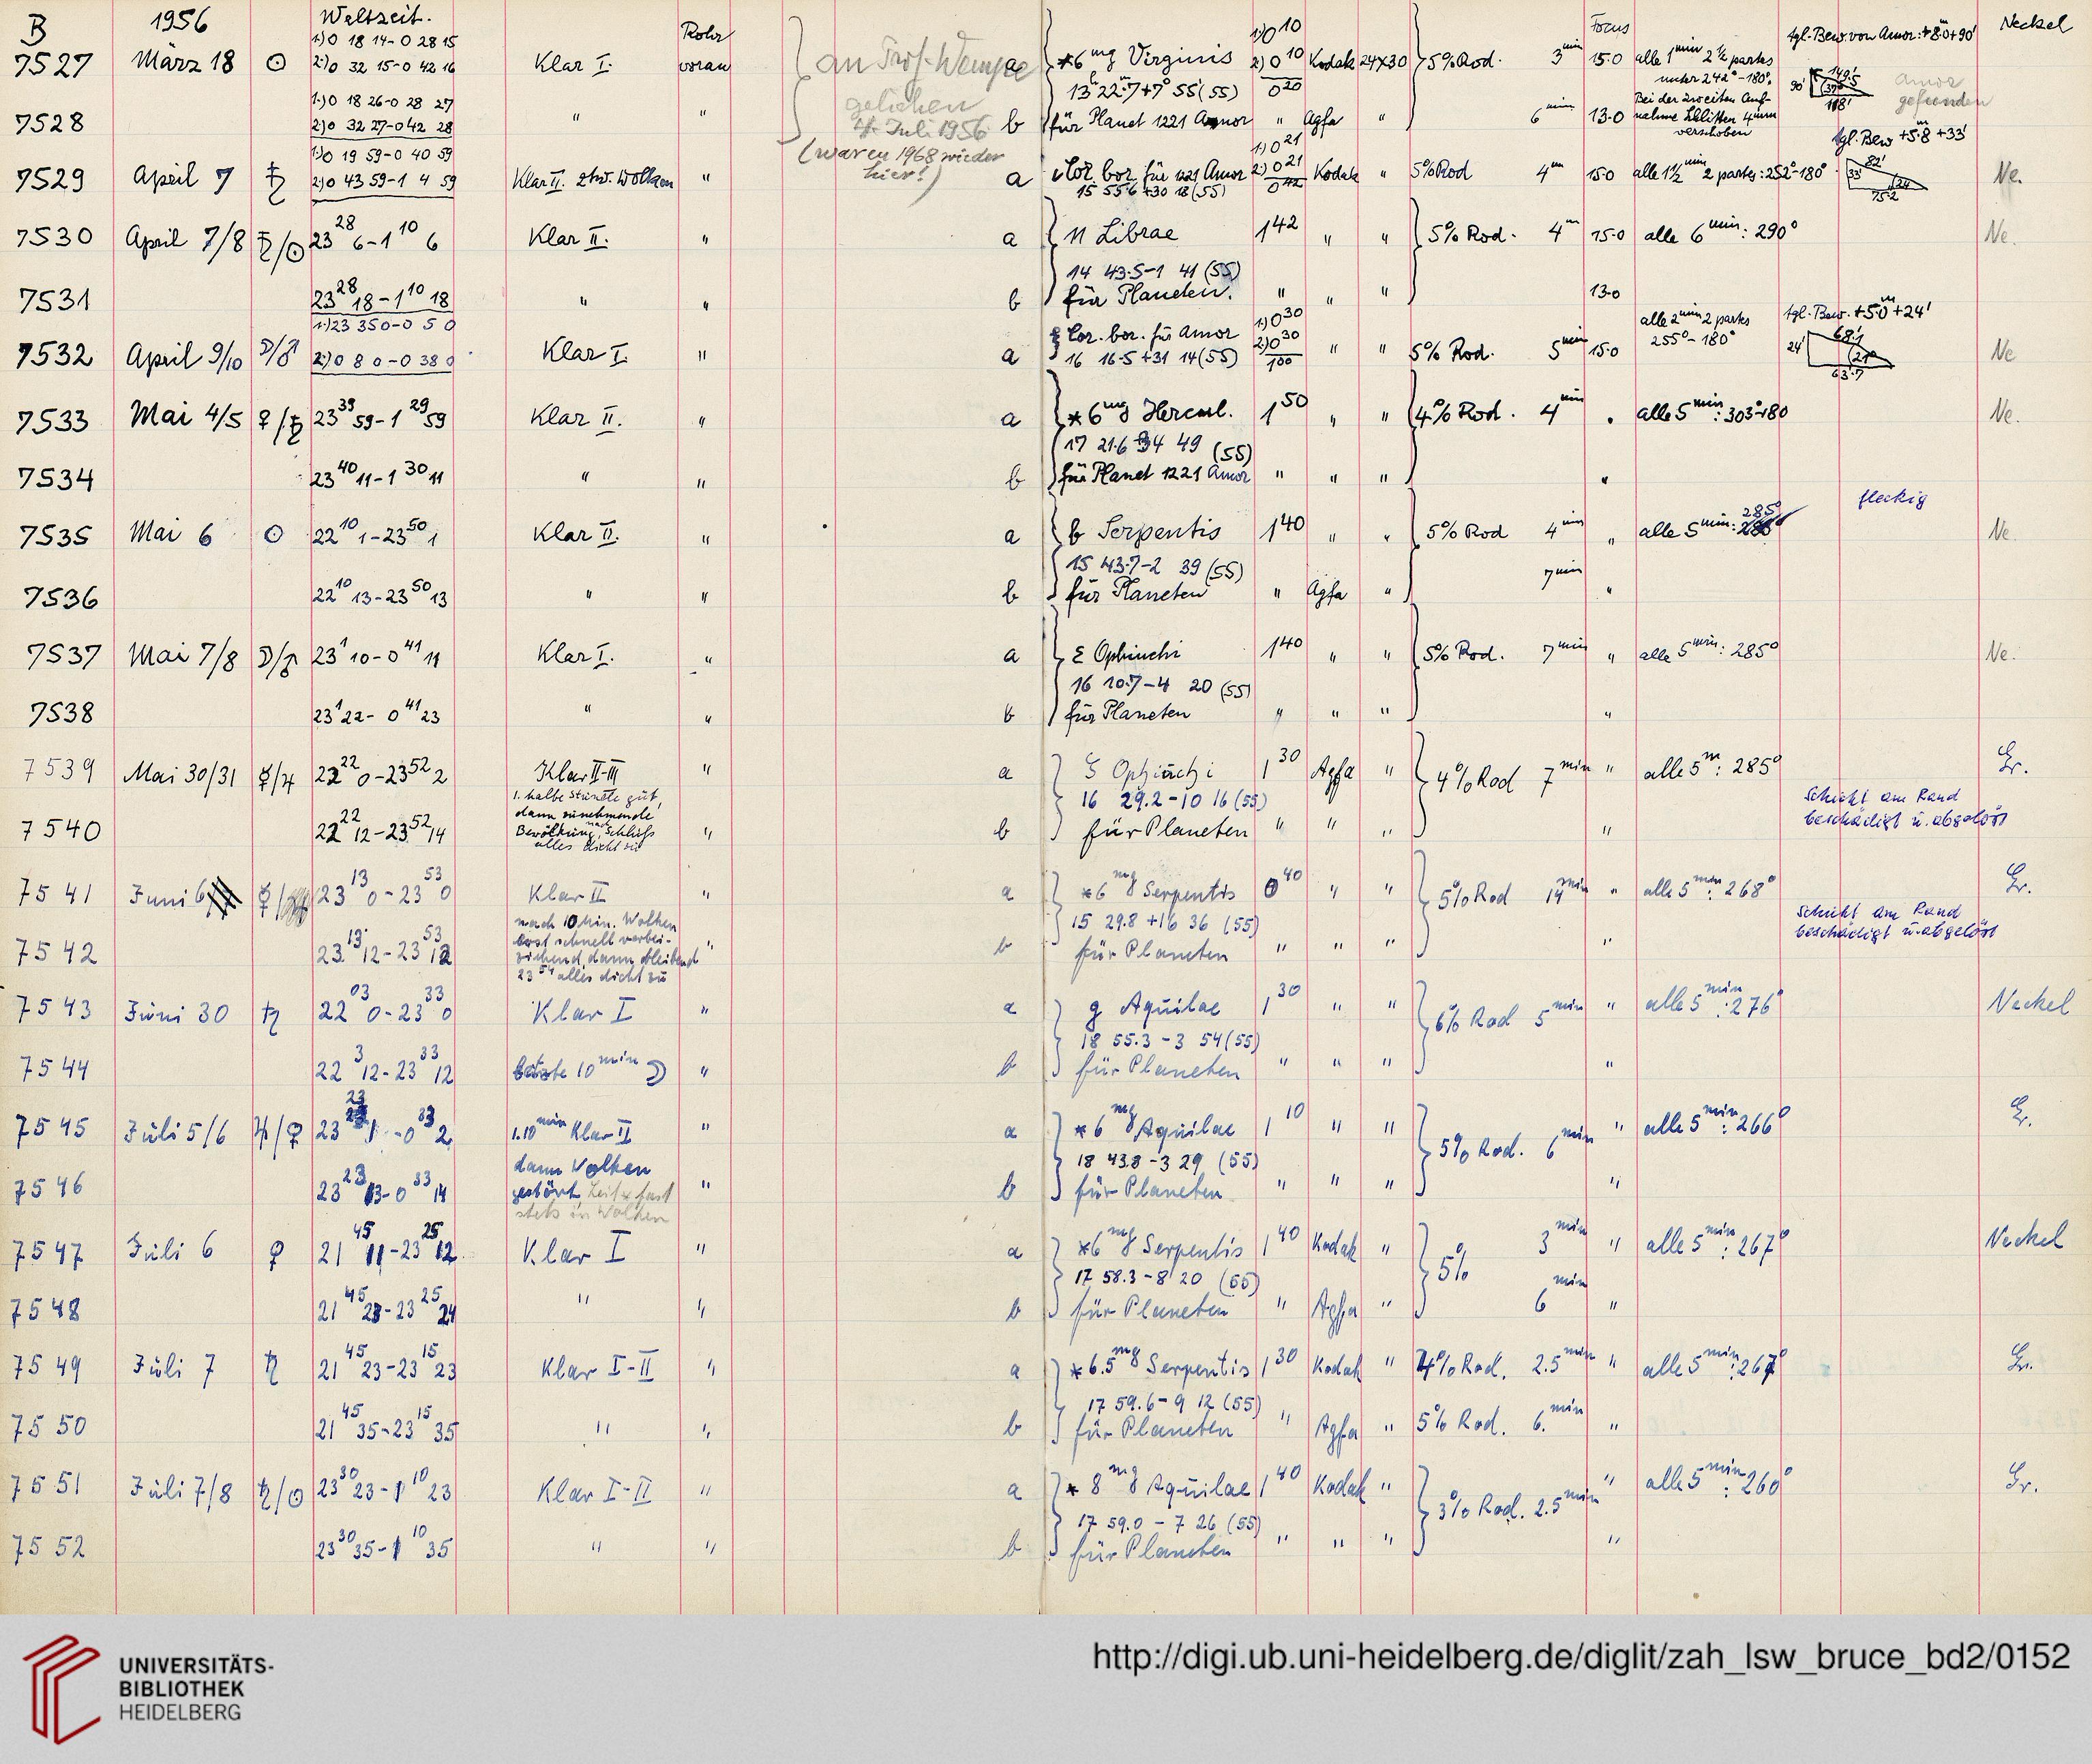 B 1956 Weltzeit. Rohr Focus tgl. Bew. von Amor: +8.0 +90' Neckel
1.) 0 18 14 - 0 28 15 1.) 0 10
7527 März 18 ☉ 2.) 0 32 15 - 0 42 16 Klar I. voran an Prof. Wempe a *6 mg Virginis 2.) 0 10 Kodak 24x30 5% Rod. 3 min 15.0 alle 1 min 2 1/2 partes
unter 242° - 180°
13 h 22.7 m +7° 55' (55) 0 20 90' 149.5 37° 118' Amor gefunden
1.) 0 18 26 - 0 28 27 geliehen Bei der zweiten Auf-
7528 2.) 0 32 27 - 0 42 28 " " 4. Juli 1956 b für Planet 1221 Amor " Agfa " 6 min 13.0 nahme Schlitten 4 mm
verschoben tgl. Bew +5.8 m +33'
1.) 0 19 59 - 0 40 59 (waren 1968 wieder 1.) 0 21
7529 April 7 ♄ 2.) 0 43 59 - 1 4 59 Klar II. ztw. Wolken " hier!) a ι Cor. bor. für 1221 Amor 2.) 0 21 Kodak " 5% Rod 4 m 15.0 alle 1 1/2 min 2 partes: 252° - 180° 82' 33' 24 75.2 Ne.
15 55.6 +30 18 (55) 0 42
7530 April 7/8 ♄/☉ 23 28 6 - 1 10 6 Klar II. " a 11 Librae 1 42 " " 5% Rod. 4 m 15.0 alle 6 min: 290° Ne.
14 43.5 -1 41 (55)
7531 23 28 18 - 1 10 18 " " b für Planeten. " " " 13.0
1.) 23 35 0 - 0 5 0 ξ Cor. bor. für Amor 1.) 0 30 alle 2 min 2 partes tgl. Bew. +5.0 m +24'
7532 April 9/10 ☽/♂ 2.) 0 8 0 - 0 38 0 Klar I. " a 16 16.5 +31 14 (55) 2.) 0 30 " " 5% Rod. 5 min 15.0 255° - 180° 24' 68.1 21° 63.7 Ne
1 00
7533 Mai 4/5 ♀/♄ 23 39 59 - 1 29 59 Klar II. " a *6 mg Hercul. 1 50 " " 4% Rod. 4 min " alle 5 min: 303° - 180 Ne.
17 21.6 +34 49 (55)
7534 23 40 11 - 1 30 11 " " b für Planet 1221 Amor " " " "
fleckig
7535 Mai 6 ☉ 22 10 1 - 23 50 1 Klar II. " a b Serpentis 1 40 " " 5% Rod 4 min " alle 5 min: 285° Ne.
15 43.7 -2 39 (55)
7536 22 10 13 - 23 50 13 " " b für Planeten " Agfa " 7 min "
7537 Mai 7/8 ☽/♂ 23 1 10 - 0 41 11 Klar I. " a ε Ophiuchi 1 40 " " 5% Rod. 7 min " alle 5 min: 285° Ne.
16 10.7 -4 20 (55)
7538 23 1 22 - 0 41 23 " " b für Planeten " " " "
7539 Mai 30/31 ☿/♃ 22 22 0 - 23 52 2 Klar II-III " a ζ Ophiuchi 1 30 Agfa " 4% Rod 7 min " alle 5 m: 285° Gr.
1. halbe Stunde gut, 16 29.2 -10 16 (55) Schicht am Rand
dann zunehmende beschädigt u. abgelöst
7540 22 22 12 - 23 52 14 Bewölkung, nach Schluss " b für Planeten " " " "
alles dicht zu
7541 Juni 6 ☿ 23 13 0 - 23 53 0 Klar II " a *6 mg Serpentis 0 40 " " 5% Rod 14 min " alle 5 min: 268° Gr.
nach 10 Min. Wolken 15 29.8 +16 36 (55) Schicht am Rand
erst schnell vorbei- beschädigt u. abgelöst
7542 23 13 12 - 23 53 12 ziehend, dann bleibend " b für Planeten " " " "
23 54 alles dicht zu
7543 Juni 30 ♄ 22 03 0 - 23 33 0 Klar I " a g Aquilae 1 30 " " 6% Rod 5 min " alle 5 min: 276° Neckel
18 55.3 -3 54 (55)
7544 22 3 12 - 23 33 12 letzte 10 min ☽ " b für Planeten " " " "
7545 Juli 5/6 ♃/♀ 23 23 1 - 0 33 2 1. 10 min Klar II " a *6 mg Aquilae 1 10 " " 5% Rod. 6 min " alle 5 min: 266° Gr.
dann Wolken 18 43.8 -3 29 (55)
7546 23 23 13 - 0 33 14 gestört Leit* fast " b für Planeten " " " "
stets in Wolken
7547 Juli 6 ♀ 21 45 11 - 23 25 12 Klar I " a *6 mg Serpentis 1 40 Kodak " 5% 3 min " alle 5 min: 267° Neckel
17 58.3 -8 20 (55)
7548 21 45 23 - 23 25 24 " " b für Planeten " Agfa " 6 min "
7549 Juli 7 ♄ 21 45 23 - 23 15 23 Klar I-II " a *6.5 mg Serpentis 1 30 Kodak " 4% Rod. 2.5 min " alle 5 min: 267° Gr.
17 59.6 -9 12 (55)
7550 21 45 35 - 23 15 35 " " b für Planeten " Agfa " 5% Rod. 6. min "
7551 Juli 7/8 ♄/☉ 23 30 23 - 1 10 23 Klar I-II " a *8 mg Aquilae 1 40 Kodak " 3% Rod. 2.5 min " alle 5 min: 260° Gr.
17 59.0 -7 26 (55)
7552 23 30 35 - 1 10 35 " " b für Planeten " " " "
UNIVERSITÄTS-
BIBLIOTHEK
HEIDELBERG
http://digi.ub.uni-heidelberg.de/diglit/zah_lsw_bruce_bd2/0152